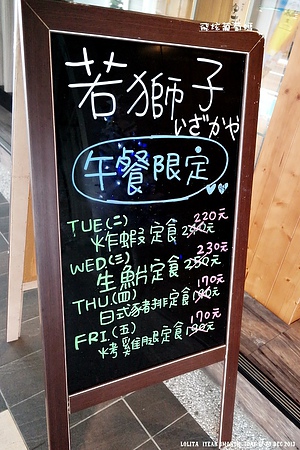 若獅子
いざかや
午餐限定
TUE.(二) 220元
炸蝦定食
WED.(三) 230元
生魚片定食 250元
THU.(四) 170元
日式豬排定食 190元
FRI.(五) 170元
烤雞腿定食 190元